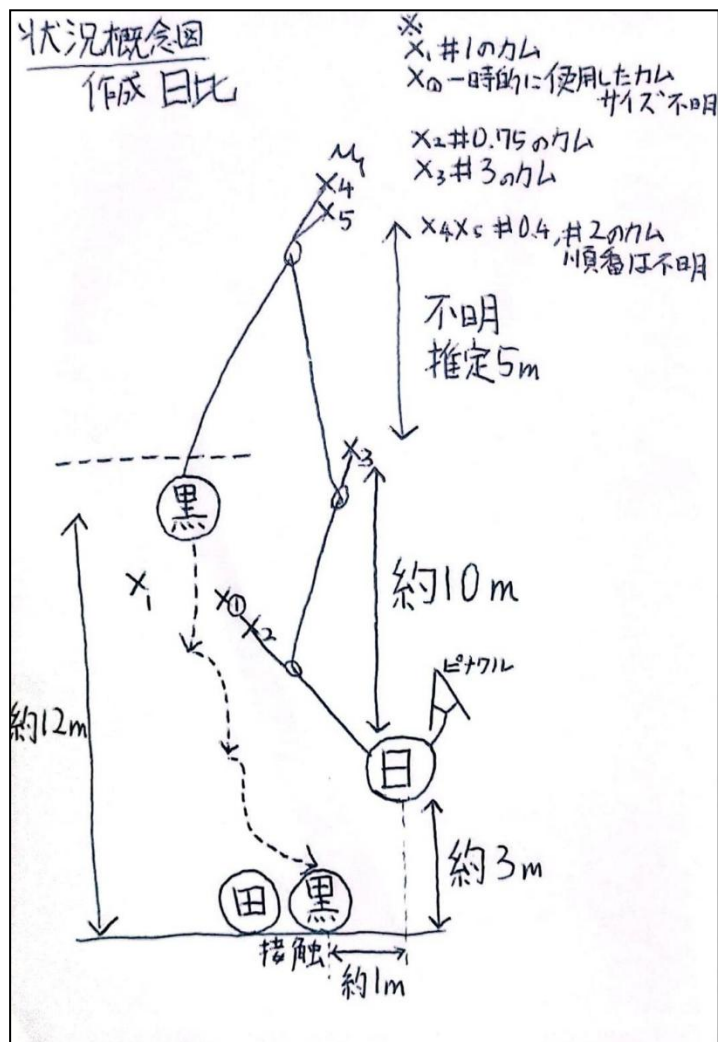 状況概念図
作成 日比
※
X₁ #1のカム
X① 一時的に使用したカム
サイズ不明
X₂ #0.75のカム
X₃ #3のカム
X₄X₅ #0.4, #2のカム
順番は不明
X4
X5
不明
推定5m
X3
黒
X1
X①
X2
約10m
ピナクル
約12m
日
約3m
田
黒
接触
約1m